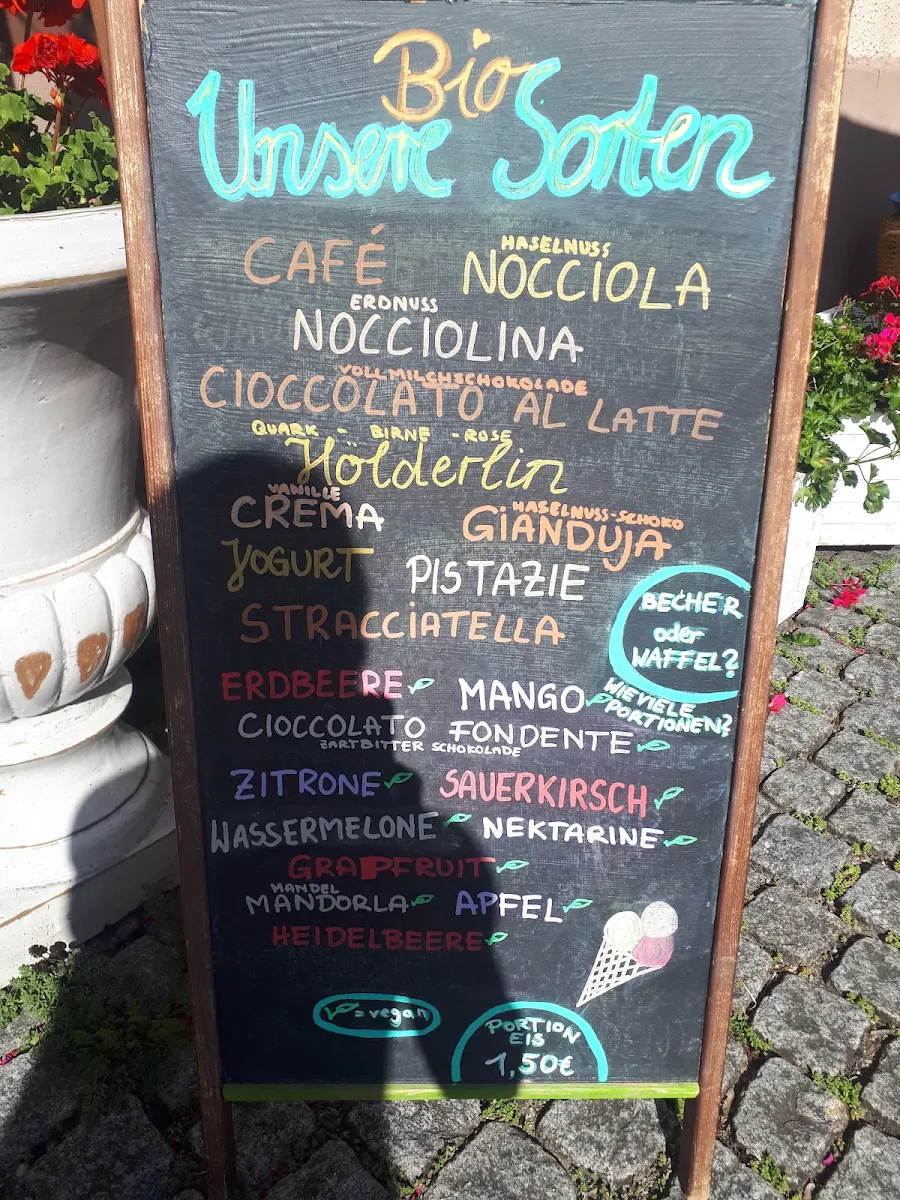 Bio
Unsere Sorten
HASELNUSS
CAFÉ NOCCIOLA
ERDNUSS
NOCCIOLINA
VOLLMILCHSCHOKOLADE
CIOCCOLATO AL LATTE
QUARK - BIRNE - ROSE
Hölderlin
VANILLE
CREMA
HASELNUSS-SCHOKO
GIANDUJA
YOGURT PISTAZIE
STRACCIATELLA
BECHER
oder
WAFFEL?
WIEVIELE
PORTIONEN?
ERDBEERE MANGO
CIOCCOLATO FONDENTE
ZARTBITTER SCHOKOLADE
ZITRONE SAUERKIRSCH
WASSERMELONE NEKTARINE
GRAPFRUIT
MANDEL
MANDORLA APFEL
HEIDELBEERE
= vegan
PORTION
EIS
1,50€